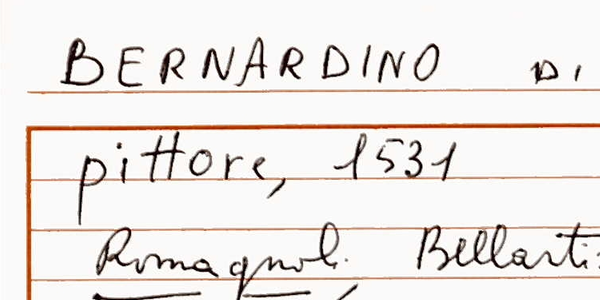 BERNARDINO DI
pittore, 1531
Romagnoli. Bellarti